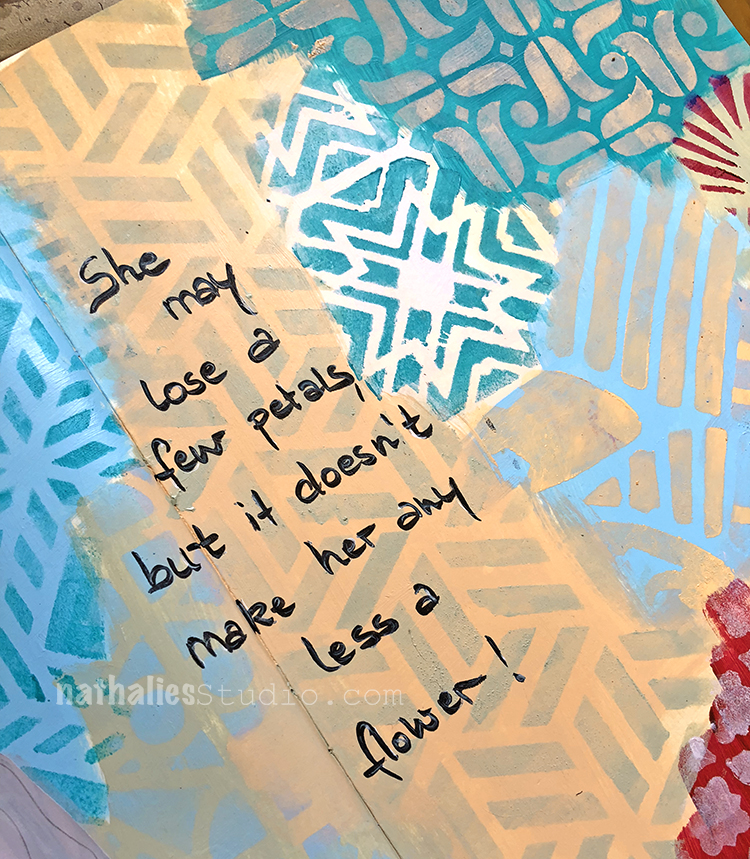 She
may
lose a
few petals,
but it doesn't
make her any
less a
flower!
nathaliesStudio.com